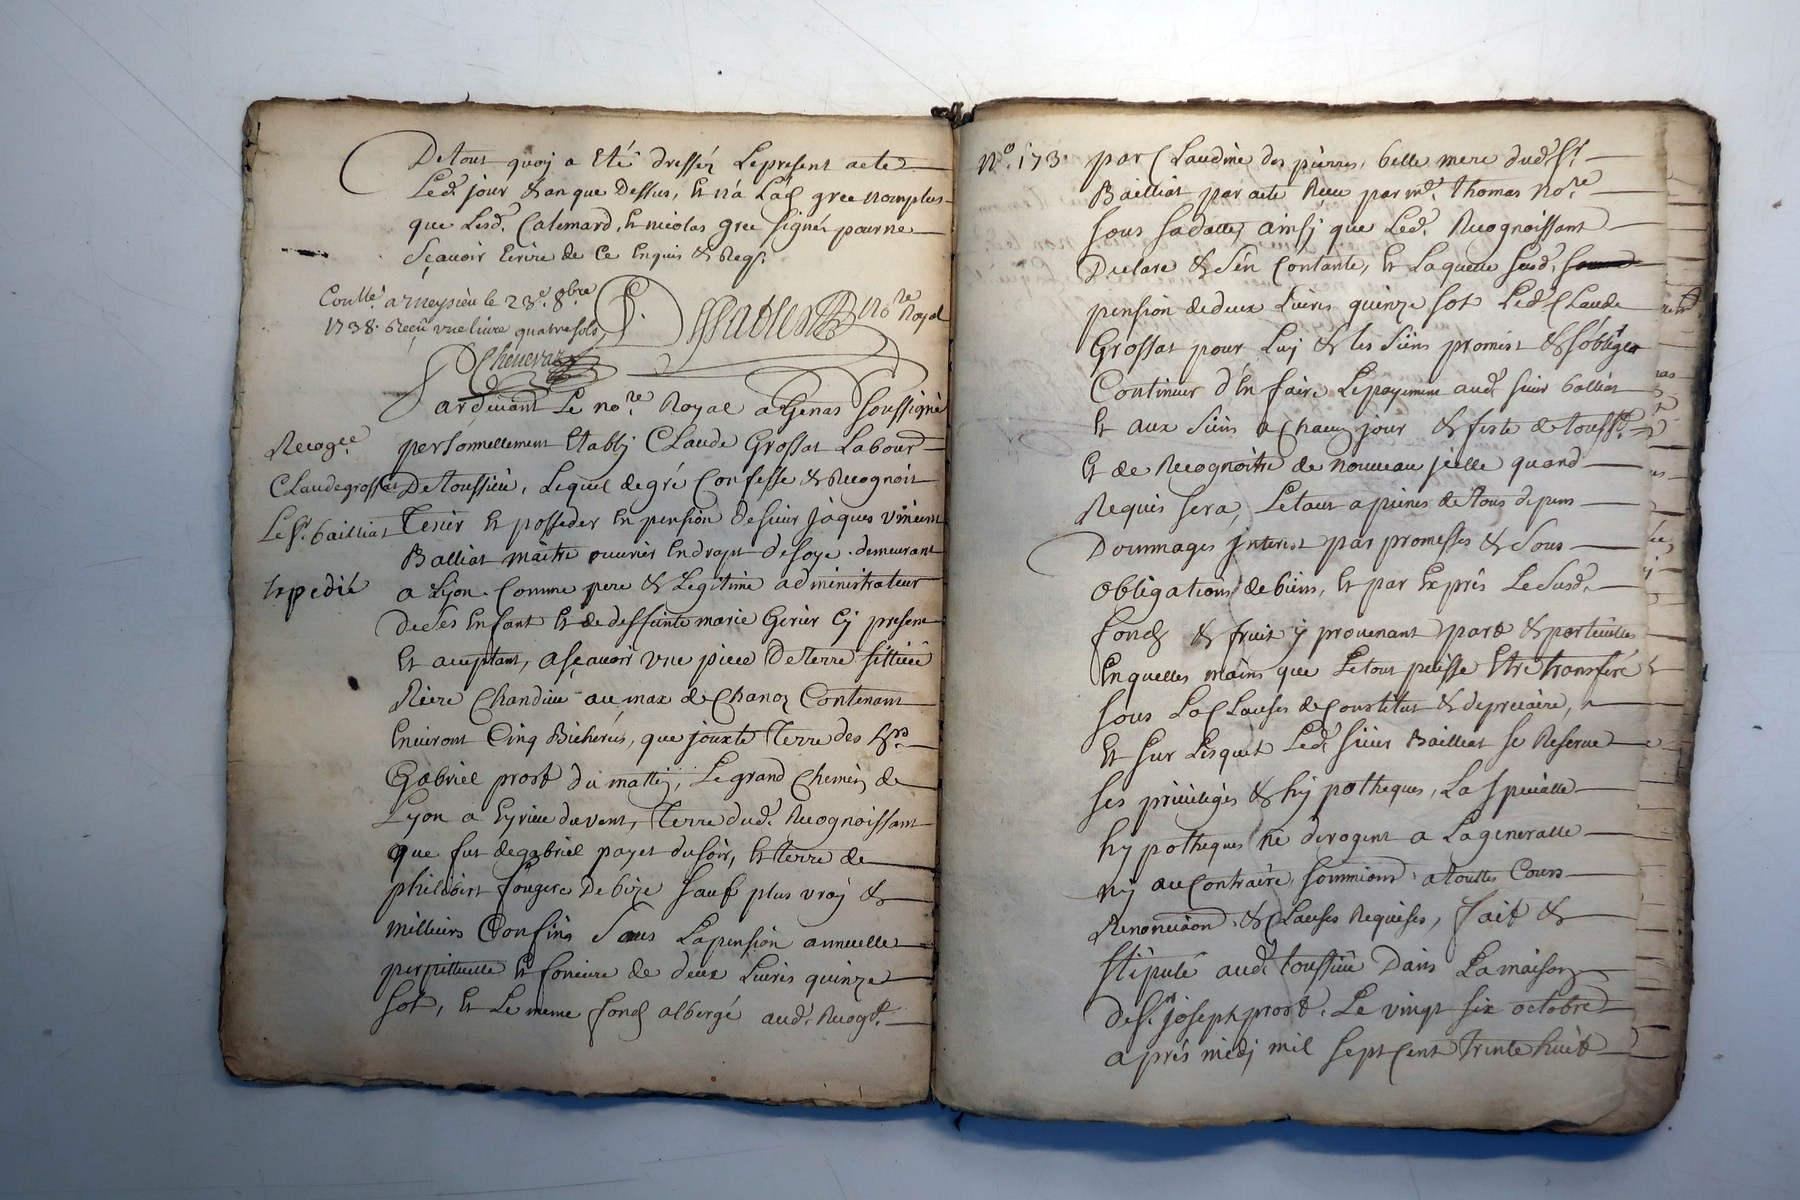 De tout quoy a Eté dressé, Le present acte
Led. jour & an que Dessus, Et n'a Lad. gree nomplus
que Lesd. Calemard, & nicolas gree signé, pour ne
Sçavoir Ecrire de Ce Enquis & Reqs.
Contlé. a Meysieu le 23e. 8bre
1738. Reçu une livre quatre sols
Chenevaz
Nore Royal
Pardevant Le nore. Royal a Genas soussigné
Recogce
personnellement Etably Claude Grossat Labour
Claude grossat
De toussieu, Lequel de gré Confesse & Recognoit
Le Sr. bailliat
Tenir Et posseder En pension de sieur jaques vincent
Balliat maitre ouvrier En drapt de soye. demeurant
Expedié
a Lyon. Comme pere & Legitime administrateur
de ses Enfant & de deffunte marie Girier Cy present
Et aceptant, asçavoir une piece De terre sittuée
Riere Chandieu au max de Chanoz Contenant
Environt Cinq Bicherés, que jouxte Terre des Srs.
Gabriel prost du mattin, Le grand Chemin de
Lyon a heyrieu du vent, Terre dud. Recognoissant
que fut de gabriel payet du soir, Et terre de
philibert fougere De bize sauf plus vray &
millieurs Confins Sous La pension annuelle
perpettuelle Et fonciere de deux Livres quinze
sol, Et Le meme fond albergé aud. Recogt.
No. 173.
par Claudine des pierres, belle mere dud. Sr.
Bailliat par acte Reçu par me. thomas nore.
sous sa datte, ainsy que Led. Recognoissant
Declare & s'en Contante, Et Laquelle susd.
pension de deux Livres quinze sol Led. Claude
Grossat pour Luy & les siens promest & s'obliger
Continuer d'En faire Le payement aud. sieur balliat
Et aux siens a Chacun jour & feste de toussts.
Et de Recognoitre de nouveau jcelle quand
Requis sera, Le tout a peines de tous depens
Dommages jnterest par promesses & sous
obligations de biens, Et par Exprés Le susd.
fond & fruit y provenant part & portés
En quelles mains que Le tout puisse Etre transferé
sous La Clauses de Constitut & de precaire,
Et sur Lesquel Led. sieur Bailliat se Reserve
ses privileges & hypotheques, La speciale
hypotheques ne derogent a La generalle
ny au Contraire soumissions a touttes Cours
Renonciaon & Clauses Requises, fait &
stipulé aud. toussieu Dans La maison
de Sr. joseph prost. Le vingt six octobre
aprés midy mil sept Cent trente huit